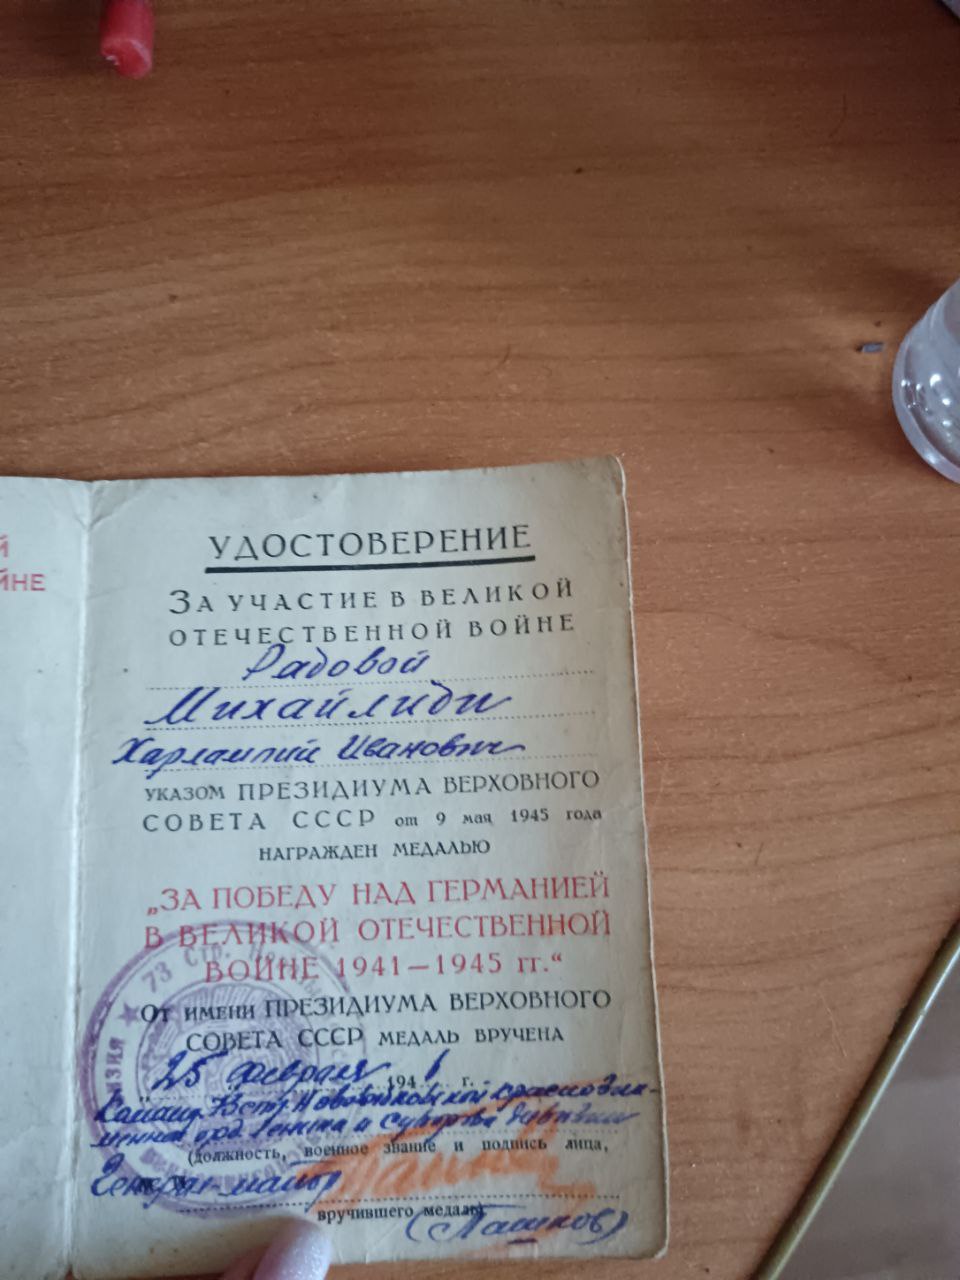 Й
ЙНЕ
УДОСТОВЕРЕНИЕ
ЗА УЧАСТИЕ В ВЕЛИКОЙ
ОТЕЧЕСТВЕННОЙ ВОЙНЕ
Радовой
Михайлиди
Харлампий Иванович
УКАЗОМ ПРЕЗИДИУМА ВЕРХОВНОГО
СОВЕТА СССР от 9 мая 1945 года
НАГРАЖДЕН МЕДАЛЬЮ
„ЗА ПОБЕДУ НАД ГЕРМАНИЕЙ
В ВЕЛИКОЙ ОТЕЧЕСТВЕННОЙ
ВОЙНЕ 1941—1945 гг.“
ОТ ИМЕНИ ПРЕЗИДИУМА ВЕРХОВНОГО
СОВЕТА СССР МЕДАЛЬ ВРУЧЕНА
25 февраля 1946 г.
Команд. 73 стр. Новозыбковской краснозна-
менной орд. Ленина и Суворова дивизии
(должность, военное звание и подпись лица,
Генерал-майор
вручившего медаль)
(Пашков)
★ 73 Стр.